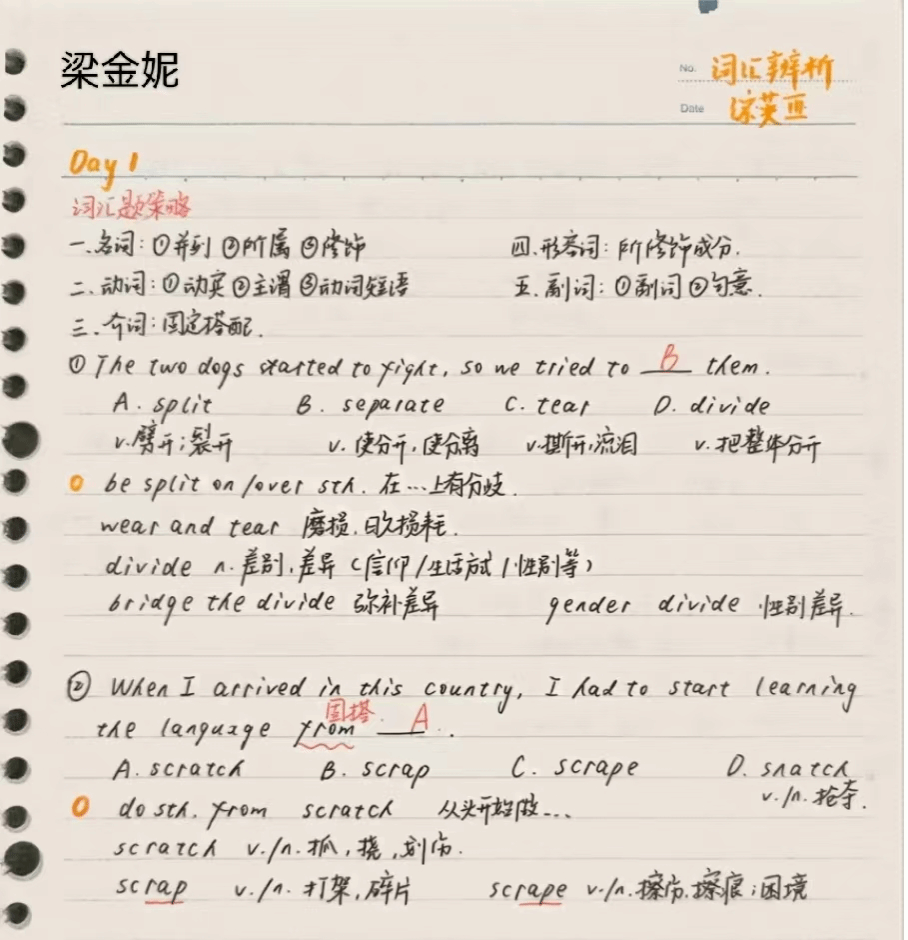 梁金妮
No. 词汇辨析
Date 徐英亚
Day 1
词汇题策略
一.名词:①并列 ②所属 ③修饰 四.形容词:所修饰成分.
二.动词:①动宾 ②主谓 ③动词短语 五.副词:①副词 ②句意.
三.介词:固定搭配.
① The two dogs started to fight, so we tried to B them.
A. split B. separate C. tear D. divide
v.劈开;裂开 v.使分开,使分离 v.撕开,流泪 v.把整体分开
be split on/over sth. 在…上有分歧.
wear and tear 磨损.日久损耗.
divide n.差别.差异(信仰/生活方式/性别等)
bridge the divide 弥补差异 gender divide 性别差异.
② When I arrived in this country, I had to start learning
固搭.
the language from A .
A. scratch B. scrap C. scrape D. snatch
v./n.抢夺.
do sth. from scratch 从头开始做…
scratch v./n.抓,挠,划伤.
scrap v./n.打架,碎片 scrape v./n.擦伤.擦痕;困境